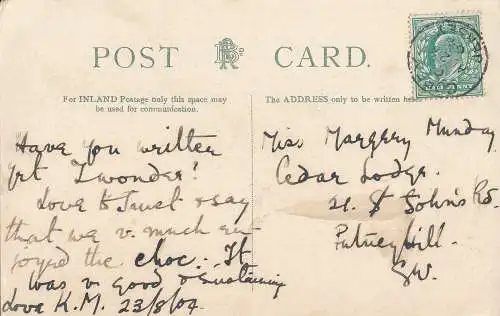 POST CARD.
For INLAND Postage only this space may
be used for communication.
The ADDRESS only to be written here.
Have you written
yet I wonder!
Love to Trust & say
that we v. much en
joyed the choc. It
was v good & sustaining
Love K.M. 23/8/04
Miss Margery Munday
Cedar Lodge.
21. St John's Rd.
Putney Hill.
S.W.